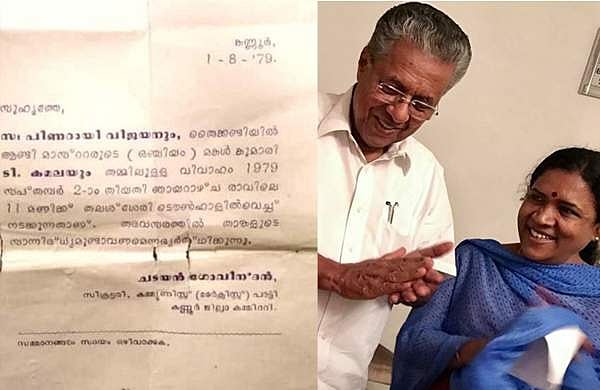 കണ്ണൂർ,
1-8-'79.
സുഹൃത്തേ,
സഃ പിണറായി വിജയനും, തൈക്കണ്ടിയിൽ
ആണ്ടി മാസ്റ്ററുടെ (ഒഞ്ചിയം) മകൾ കുമാരി
ടി. കമലയും തമ്മിലുള്ള വിവാഹം 1979
സപ്തമ്പർ 2-ാം തിയതി ഞായറാഴ്ച രാവിലെ
11 മണിക്ക് തലശ്ശേരി ടൌൺഹാളിൽവെച്ച്
നടക്കുന്നതാണ്. തദവസരത്തിൽ താങ്കളുടെ
സാന്നിദ്ധ്യമുണ്ടാവണമെന്നഭ്യർത്ഥിക്കുന്നു.
ചടയൻ ഗോവിന്ദൻ,
സിക്രട്ടരി, കമ്മ്യൂണിസ്റ്റ് (മാർക്സിസ്റ്റ്) പാർട്ടി
കണ്ണൂർ ജില്ലാ കമ്മിററി.
സമ്മാനങ്ങൾ സദയം ഒഴിവാക്കുക.